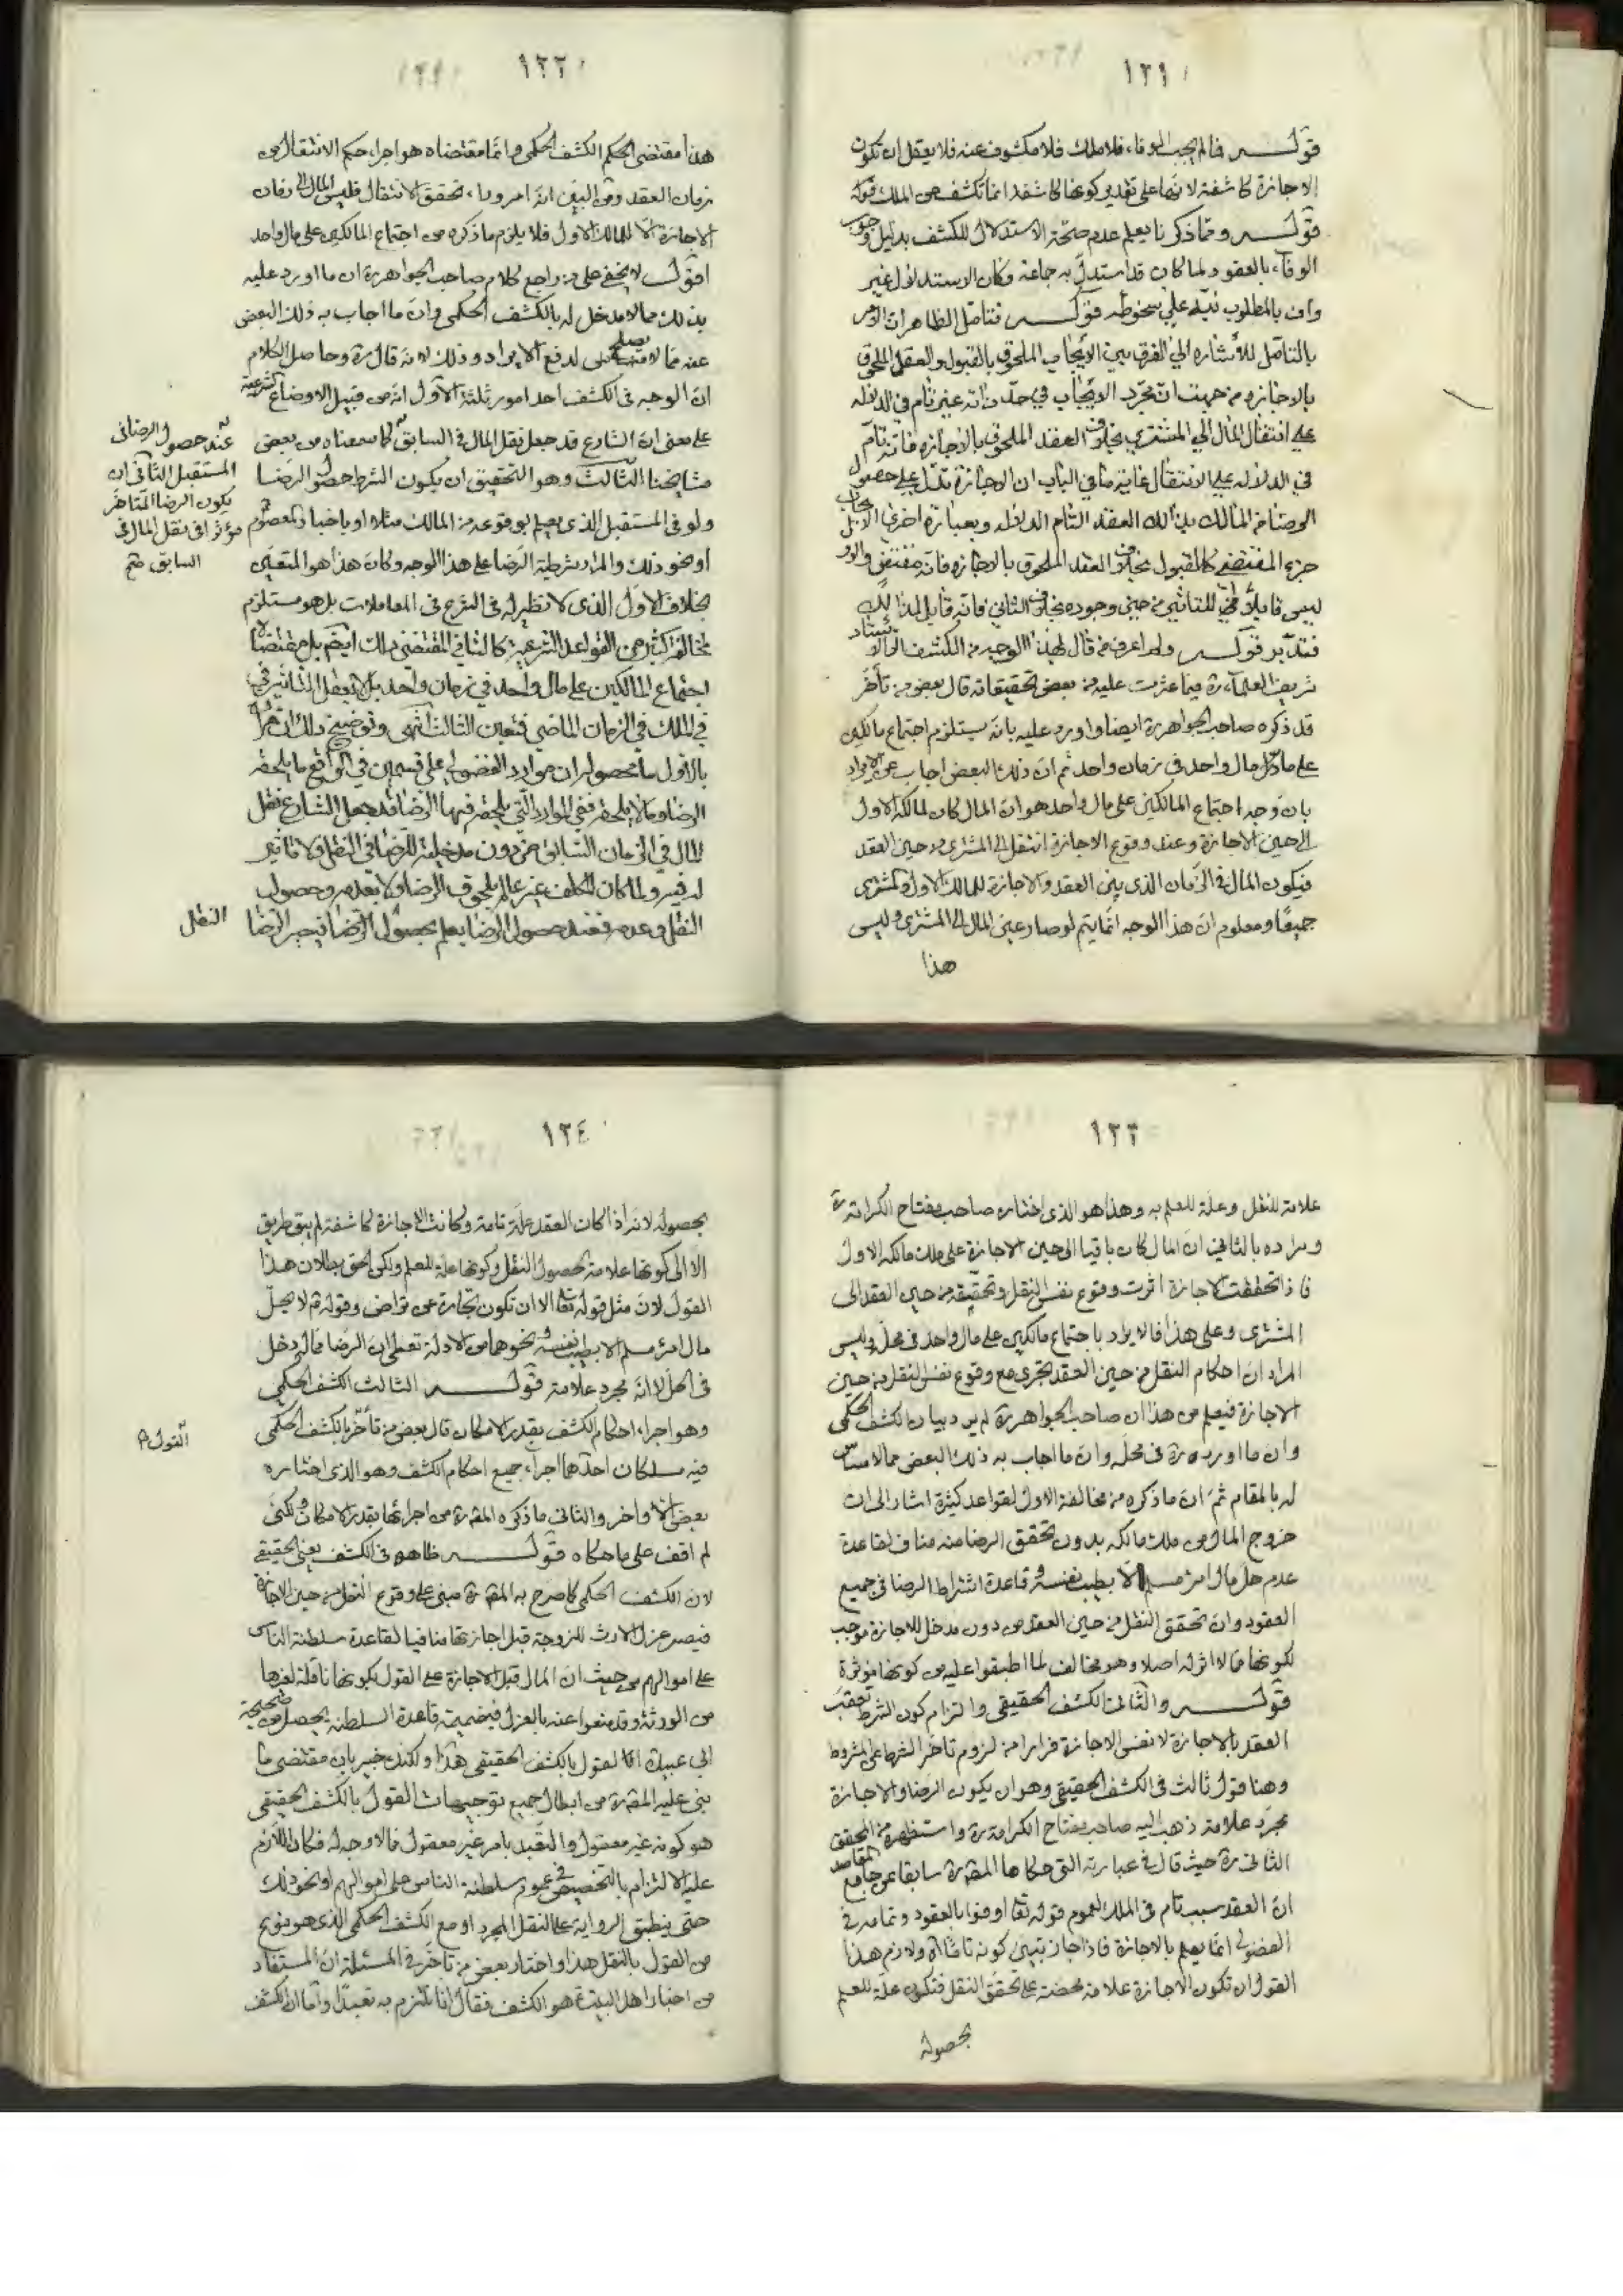 ١٢١
قوله فما لم يجب الوفاء فلا ملك فلا مكشوف عنه فلا يعقل ان تكون
الاجازة كاشفة لانها على تقدير كونها كاشفة انما تكشف عن الملك قوله
قوله ومما ذكرنا يعلم عدم صحة الاستدلال للكشف بدليل وجوب
الوفاء بالعقود لما كان قد استدل به جماعة وكان الاستدلال غير
واف بالمطلوب نبه على سقوطه قوله فتامل الظاهر ان الامر
بالتامل للاشارة الى الفرق بين الايجاب الملحوق بالقبول والعقد الملحوق
بالاجازة من حيث ان مجرد الايجاب في حد ذاته غير تام في الدلالة
على انتقال المال الى المشتري بخلاف العقد الملحوق بالاجازة فانه تام
في الدلالة على الانتقال غاية ما في الباب ان الاجازة تدل على حصول
الرضا من المالك بذلك العقد التام الدلالة وبعبارة اخرى الايجاب
جزء المقتضي كالقبول بخلاف العقد الملحوق بالاجازة فانه مقتضي والاول
ليس قابلا للتاثير من حين وجوده بخلاف الثاني فانه قابل لذلك
فتدبر قوله ولم اعرف من قال بهذا الوجه من الكشف الا الاستاد
شريف العلماء ره فيما عثرت عليه من بعض تحقيقاته قال بعض من تأخر
قد ذكره صاحب الجواهر ره ايضا واورد عليه بانه يستلزم اجتماع مالكين
على مال واحد في زمان واحد ثم ان ذلك البعض اجاب عن الايراد
بان وجه اجتماع المالكين على مال واحد هو ان المال كان لمالكه الاول
الى حين الاجازة وعند وقوع الاجازة انتقل الى المشتري من حين العقد
فيكون المال في الزمان الذي بين العقد والاجازة للمالك الاول والمشتري
جميعا ومعلوم ان هذا الوجه انما يتم لو صار عين المال الى المشتري وليس
هذا
١٢٢
هذا مقتضى الحكم الكشف الحكمي وانما مقتضاه هو اجراء حكم الانتقال من
زمان العقد ومن البين انه امر وراء تحقق الانتقال فليس المال الى زمان
الاجازة الا للمالك الاول فلا يلزم ما ذكره من اجتماع المالكين على مال واحد
اقول لا يخفى على من راجع كلام صاحب الجواهر ره ان ما اورد عليه
بذلك مما لا مدخل له بالكشف الحكمي وان ما اجاب به ذلك البعض
عنه مما لا يصلح لدفع الايراد وذلك لانه قال ره وحاصل الكلام
ان الوجه في الكشف احد امور ثلثة الاول انه من قبيل الاوضاع الشرعية
على معنى ان الشارع قد جعل نقل المال في السابق كما سمعناه من بعض
عند حصول الرضا في
المستقبل الثاني ان
يكون الرضا المتاخر
مؤثرا في نقل المال في
السابق صح
مشايخنا الثالث وهو التحقيق ان يكون الشرط حصول الرضا
ولو في المستقبل الذي يعلم بوقوعه من المالك مثلا او باخبار المعصوم
او نحو ذلك والمراد شرطية الرضا على هذا الوجه وكان هذا هو المتعين
بخلاف الاول الذي لا نظير له في الشرع في المعاملات بل هو مستلزم
مخالفة كثير من القواعد الشرعية كالثاني المقتضي ذلك ايضا بل مقتضاه
اجتماع المالكين على مال واحد في زمان واحد بل لا يعقل التاثير
في الملك في الزمان الماضي فتعين الثالث انتهى وتوضيح ذلك ان مراده
بالاول ما محصوله ان موارد الفضولي على قسمين في الواقع ما يلحقه
الرضا وما لا يلحقه ففي الموارد التي يلحقه فيها الرضا قد جعل الشارع نقل
المال في الزمان السابق من دون مدخلية للرضا في النقل ولا تاثير
له فيه ولما كان المكلف غير عالم بلحوق الرضا ولا بعدمه وحصول
النقل وعدمه فعند حصول الرضا يعلم بحصول الرضا فيجبر الرضا
النقل
١٢٣
علامة للنقل وعلة للعلم به وهذا هو الذي اختاره صاحب مفتاح الكرامة ره
ومراده بالثاني ان المال كان باقيا الى حين الاجازة على ملك مالكه الاول
فاذا تحققت الاجازة اثرت وقوع نفس النقل وتحققه من حين العقد الى
المشتري وعلى هذا فالايراد باجتماع مالكين على مال واحد في محله وليس
المراد ان احكام النقل من حين العقد تجرى مع وقوع نفس النقل من حين
الاجازة فيعلم من هذا ان صاحب الجواهر ره لم يرد بيان الكشف الحكمي
وان ما اورده ره في محله وان ما اجاب به ذلك البعض مما لا مساس
له بالمقام ثم ان ما ذكره من مخالفة الاول لقواعد كثيرة اشار الى ان
خروج المال من ملك مالكه بدون تحقق الرضا منه مناف لقاعدة
عدم حل مال امرء مسلم الا بطيب نفسه وقاعدة اشتراط الرضا في جميع
العقود وان تحقق النقل من حين العقد من دون مدخل للاجازة موجب
لكونها مما لا اثر له اصلا وهو مخالف لما اطبقوا عليه من كونها مؤثرة
قوله والثاني الكشف الحقيقي والتزام كون الشرط تعقب
العقد بالاجازة لا نفس الاجازة فرارا من لزوم تاخر الشرط عن المشروط
وهنا قول ثالث في الكشف الحقيقي وهو ان يكون الرضا والاجازة
مجرد علامة ذهب اليه صاحب مفتاح الكرامة ره واستظهره من المحقق
الثاني ره حيث قال في عبارته التي حكاها المصنف ره سابقا عن جامع المقاصد
ان العقد سبب تام في الملك لعموم قوله تعا اوفوا بالعقود وتمامه في
الفضولي انما يعلم بالاجازة فاذا جاز تبين كونه تاما اه ولازم هذا
القول ان تكون الاجازة علامة محضة على تحقق النقل فتكون علة للعلم
بحصوله
١٢٤
بحصوله لانه اذا كان العقد علة تامة وكانت الاجازة كاشفة لم يبق طريق
الا الى كونها علامة لحصول النقل وكونها علة للعلم ولكن الحق بطلان هذا
القول لان مثل قوله تعا الا ان تكون تجارة عن تراض وقوله ع لا يحل
مال امرء مسلم الا بطيب نفسه ونحوهما من الادلة تعطي ان الرضا مما له دخل
في الحل لا انه مجرد علامة قوله الثالث الكشف الحكمي
وهو اجراء احكام الكشف بقدر الامكان قال بعض من تأخر بالكشف الحكمي
القول
فيه مسلكان احدهما اجراء جميع احكام الكشف وهو الذي اختاره
بعض الاواخر والثاني ما ذكره المص ره من اجرائها بقدر الامكان ولكني
لم اقف على ما حكاه قوله ظاهره في الكشف يعني الحقيقي
لان الكشف الحكمي كما صرح به المص ره مبني على وقوع النقل من حين الاجازة
فيصير عزل الارث للزوجة قبل اجازتها منافيا لقاعدة سلطنة الناس
على اموالهم من حيث ان المال قبل الاجازة على القول بكونها ناقلة لغيرها
من الورثة وقد منعوا عنه بالعزل فبضميمة قاعدة السلطنة يحصل من صحيحة
ابي عبيدة القول بالكشف الحقيقي هذا ولكنك خبير بان مقتضى ما
بنى عليه المص ره من ابطال جميع توجيهات القول بالكشف الحقيقي
هو كونه غير معقول والتعبد بامر غير معقول مما لا وجه له فكان اللازم
عليه الالتزام بالتخصيص في عموم سلطنة الناس على اموالهم او نحو ذلك
حتى ينطبق الرواية على النقل المجرد او مع الكشف الحكمي الذي هو نوع
من القول بالنقل هذا واختار بعض من تأخر في المسئلة ان المستفاد
من اخبار اهل البيت ع هو الكشف فقال انا نلتزم به تعبدا واما ان الكشف